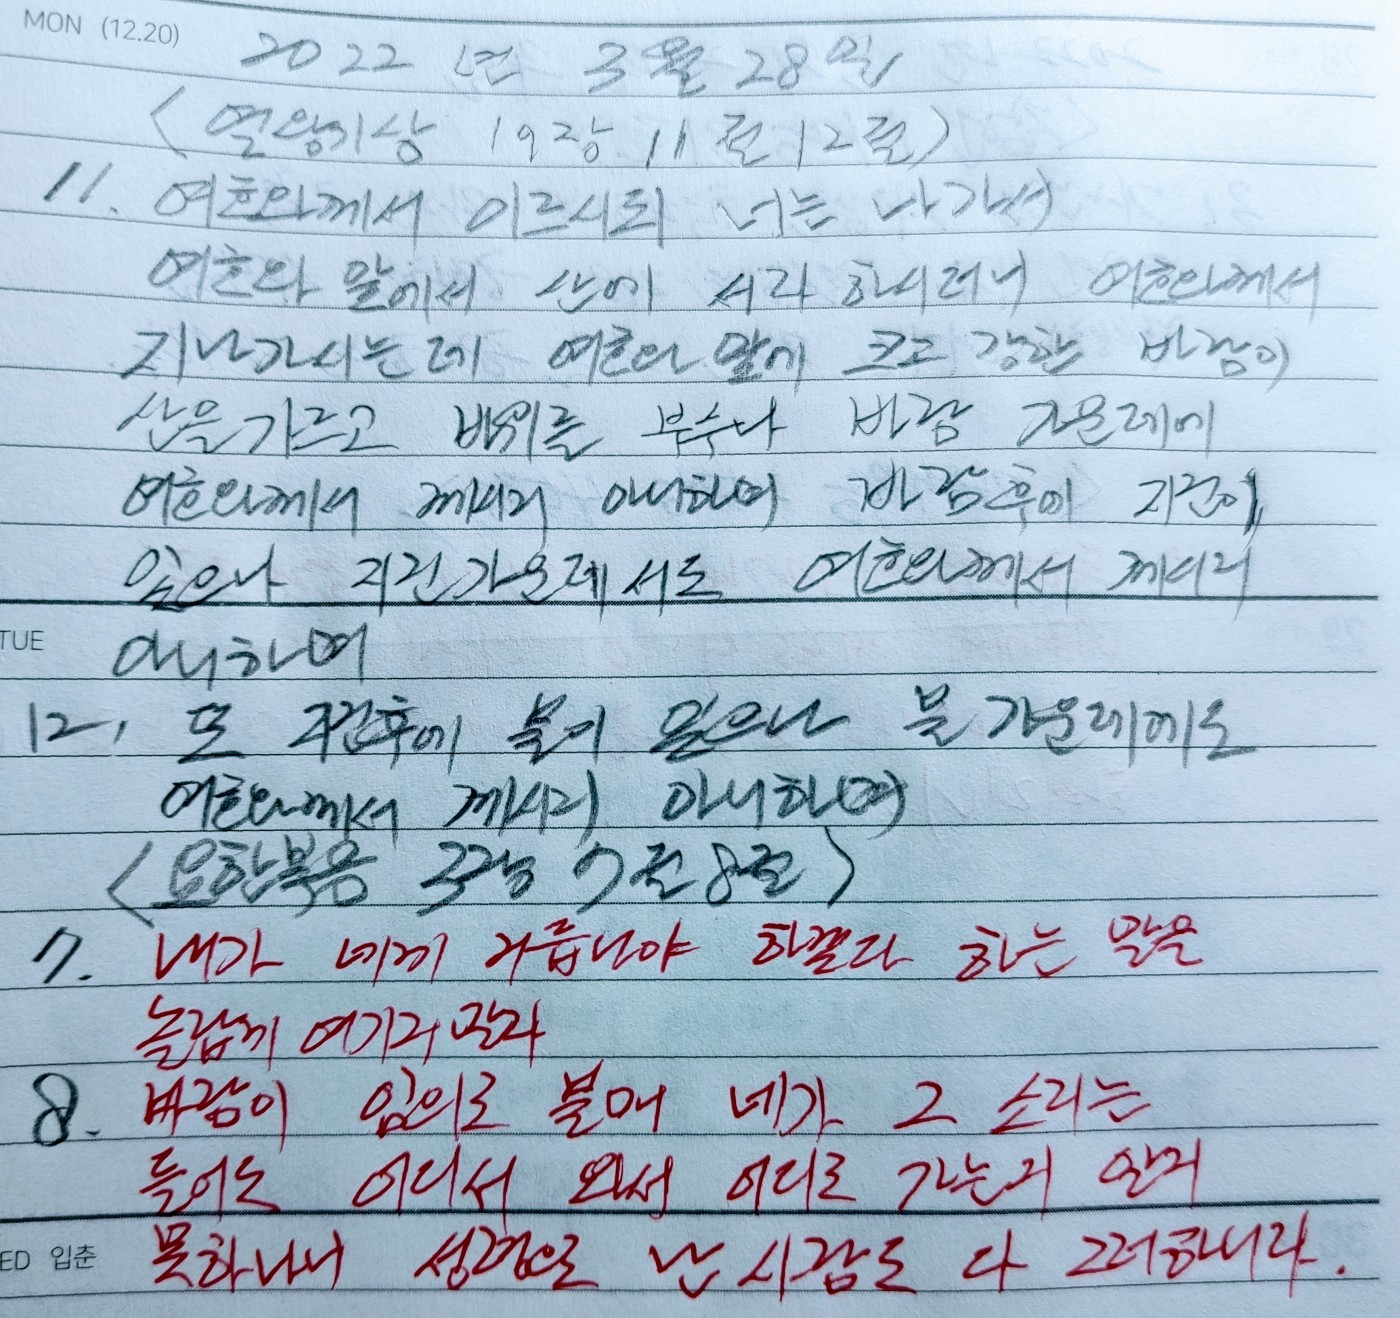 MON (12.20)
2022 년 3월 28일
<열왕기상 19장 11절 12절>
11. 여호와께서 이르시되 너는 나가서
여호와 앞에서 산에 서라 하시더니 여호와께서
지나가시는데 여호와 앞에 크고 강한 바람이
산을 가르고 바위를 부수나 바람 가운데에
여호와께서 계시지 아니하며 바람 후에 지진이
있으나 지진 가운데서도 여호와께서 계시지
TUE 아니하며
12. 또 지진 후에 불이 있으나 불 가운데에도
여호와께서 계시지 아니하며
<요한복음 3장 7절 8절>
7. 내가 네게 거듭나야 하겠다 하는 말을
놀랍게 여기지 말라
8. 바람이 임의로 불매 네가 그 소리는
들어도 어디서 와서 어디로 가는지 알지
ED 입춘 못하나니 성령으로 난 사람도 다 그러하니라.